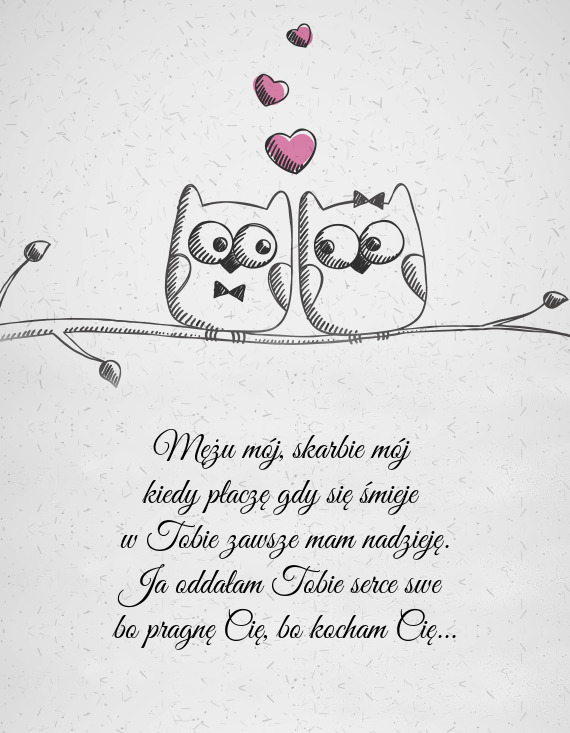 Mężu mój, skarbie mój
kiedy płaczę gdy się śmieje
w Tobie zawsze mam nadzieję.
Ja oddałam Tobie serce swe
bo pragnę Cię, bo kocham Cię...